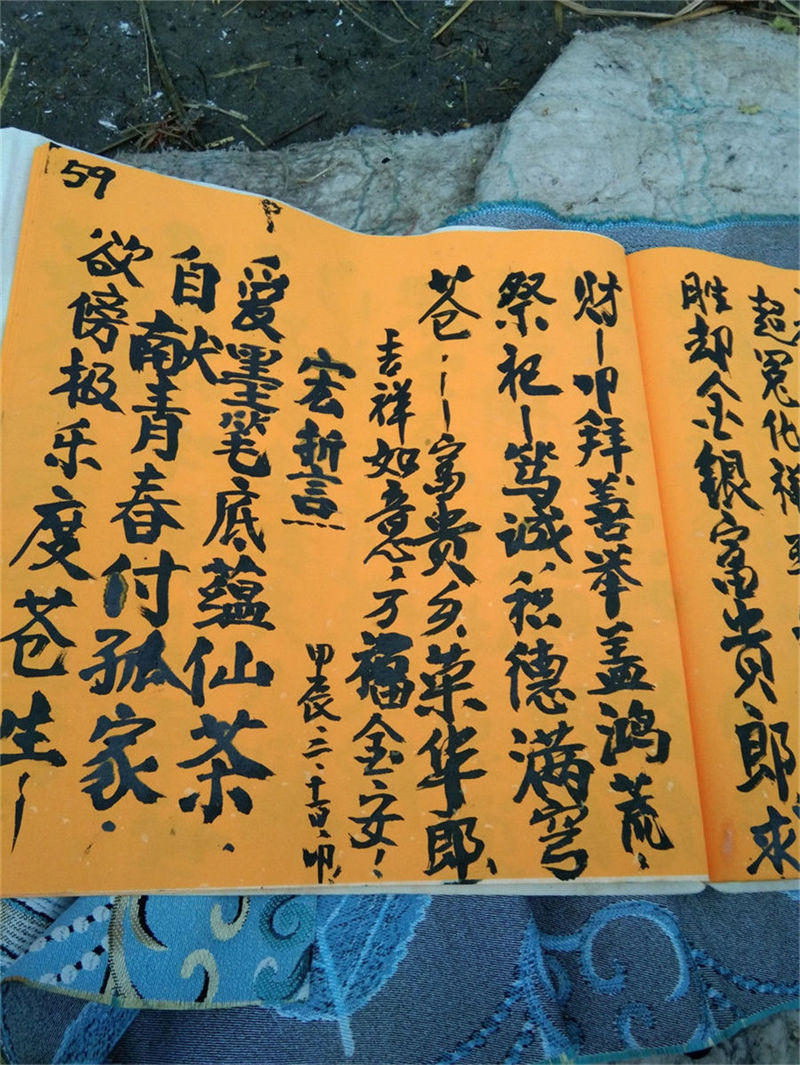 超冤化祥
胜却金银富贵郎求
财一叩拜善举盖鸿荒、
祭祀一笃诚、积德满穹
苍、一富贵乡、荣华郎、
吉祥如意、万福金安!
宏誓言
甲辰三、叩
爱墨笔底蕴仙茶.
自献青春付孤家.
欲傍极乐度苍生一
59